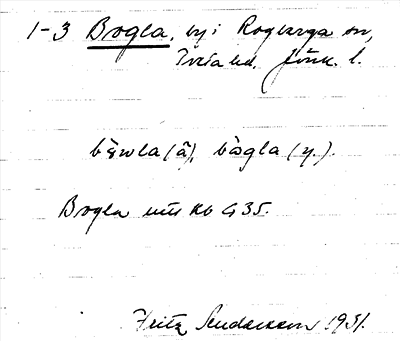 1-3 Bogla, by i Rogberga sn,
Tveta hd. Jönk. l.
bəwla (ä), bògla (y.).
Bogla utt Kb G 35.
Fritz Andersson 1931.